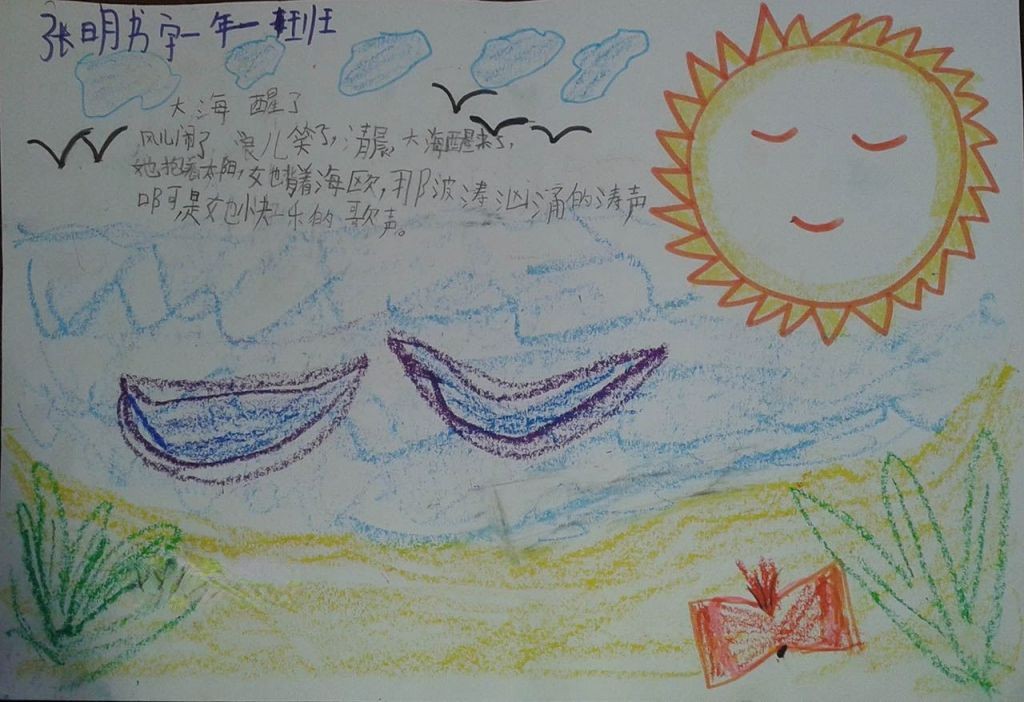 张明书宇一年一班
大海醒了
风儿闹了,浪儿笑了,清晨,大海醒来了,
她抱着太阳,她背着海欧,那波涛汹涌的涛声
啊,是她快乐的歌声。